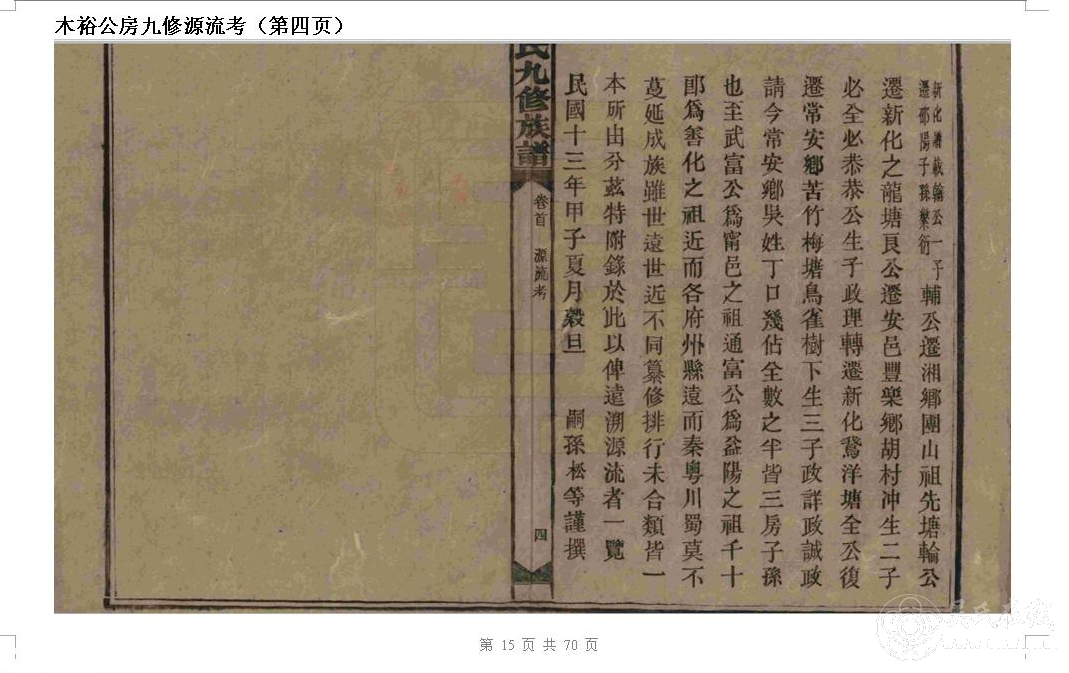 木裕公房九修源流考（第四页）
新化譜載翰公一子
遷邵陽子孫繁衍
輔公遷湘鄉團山祖先塘輪公
遷新化之龍塘艮公遷安邑豐樂鄉胡村冲生二子
必全必恭恭公生子政理轉遷新化鵞洋塘全公復
遷常安鄉苦竹梅塘鳥雀樹下生三子政詳政誠政
請今常安鄉吳姓丁口幾佔全數之半皆三房子孫
也至武富公爲甯邑之祖通富公爲益陽之祖千十
郎爲善化之祖近而各府州縣遠而秦粵川蜀莫不
蔓延成族雖世遠世近不同纂修排行未合類皆一
本所由分茲特附錄於此以俾遠溯源流者一覽
民國十三年甲子夏月穀旦　嗣孫松等謹撰
氏九修族譜
卷首　源流考
四
第 15 页 共 70 页